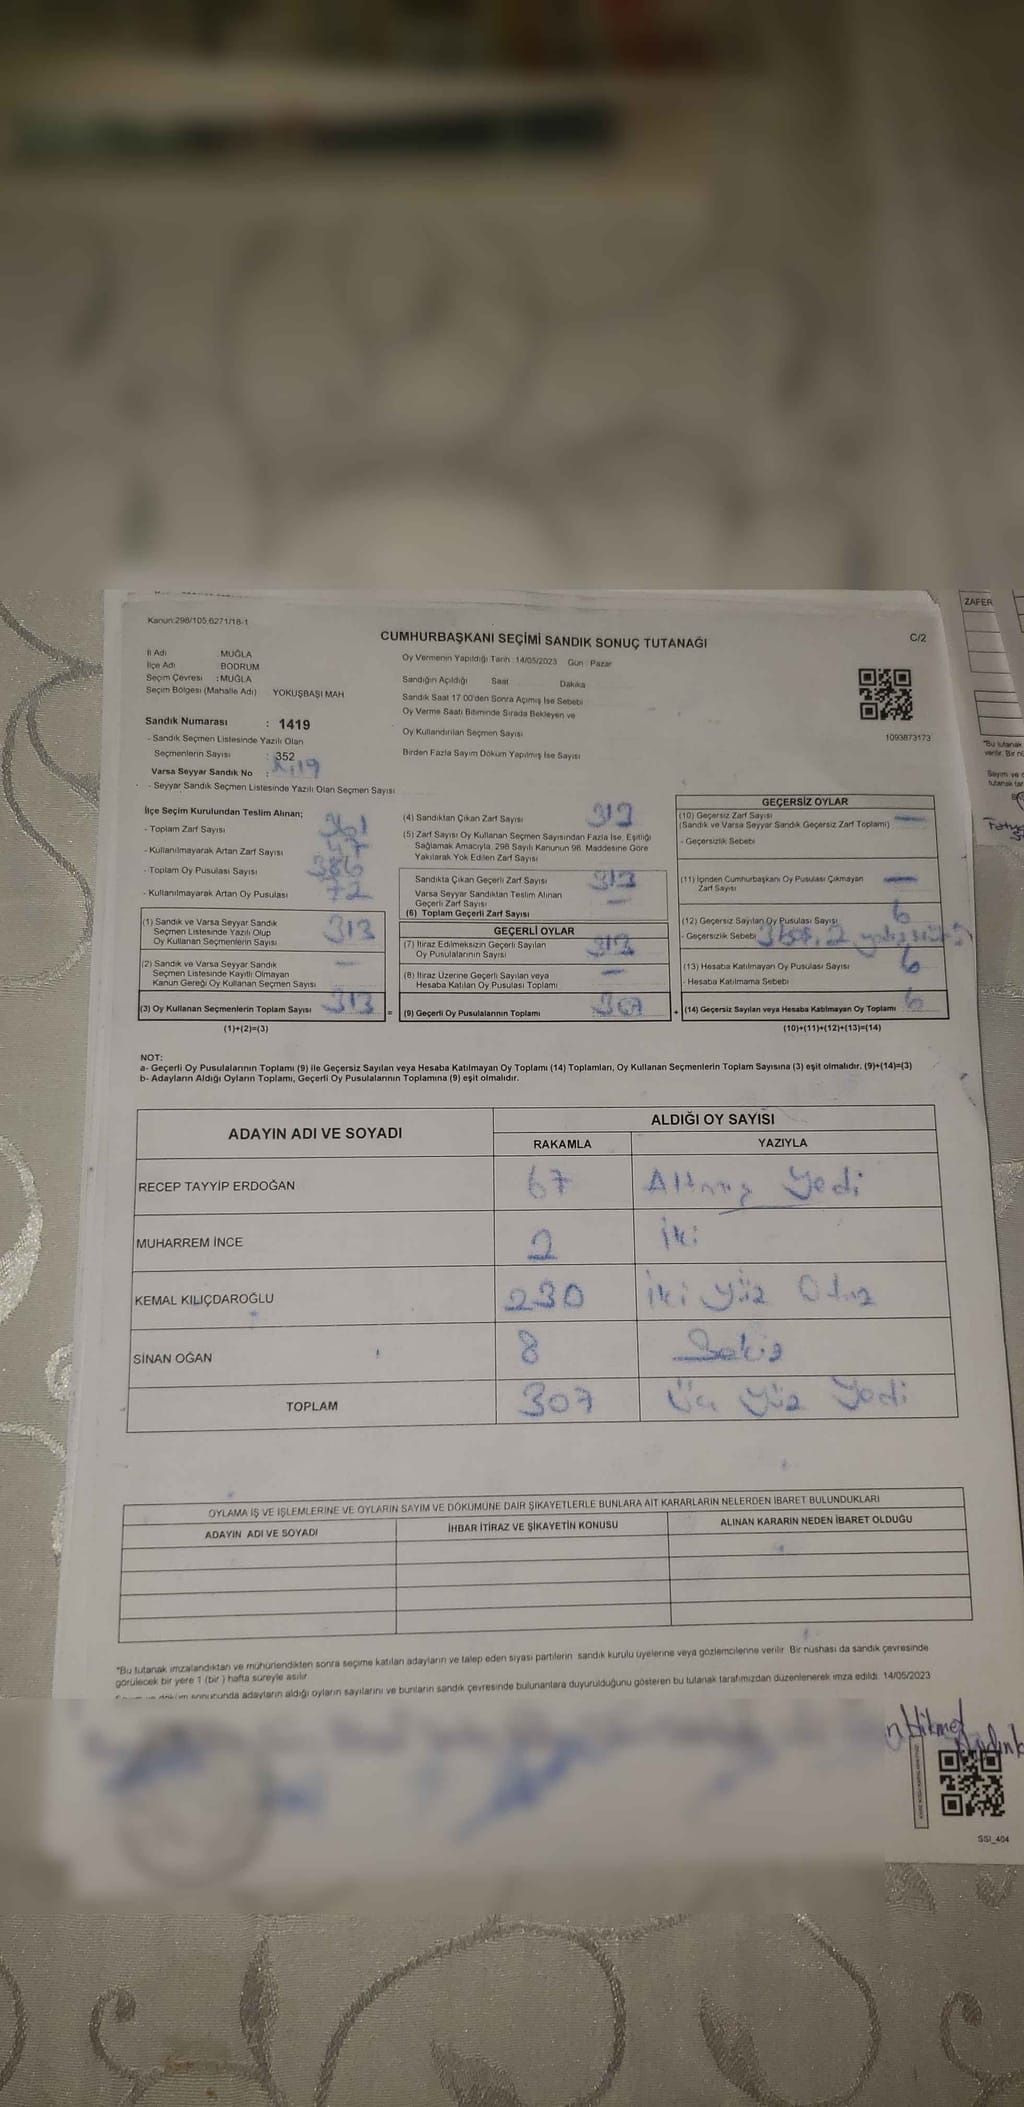 Kanun:298/105,6271/18-1
CUMHURBAŞKANI SEÇİMİ SANDIK SONUÇ TUTANAĞI
C/2
İl Adı : MUĞLA
İlçe Adı : BODRUM
Seçim Çevresi : MUĞLA
Seçim Bölgesi (Mahalle Adı) YOKUŞBAŞI MAH
Oy Vermenin Yapıldığı Tarih :14/05/2023 Gün : Pazar
Sandığın Açıldığı Saat Dakika
Sandık Saat 17.00'den Sonra Açımış İse Sebebi
Oy Verme Saati Bitiminde Sırada Bekleyen ve
Oy Kullandırılan Seçmen Sayısı
Birden Fazla Sayım Döküm Yapılmış İse Sayısı
1093873173
Sandık Numarası : 1419
- Sandık Seçmen Listesinde Yazılı Olan
Seçmenlerin Sayısı : 352
Varsa Seyyar Sandık No :
- Seyyar Sandık Seçmen Listesinde Yazılı Olan Seçmen Sayısı
İlçe Seçim Kurulundan Teslim Alınan;
- Toplam Zarf Sayısı
- Kullanılmayarak Artan Zarf Sayısı
- Toplam Oy Pusulası Sayısı
- Kullanılmayarak Artan Oy Pusulası 72
(1) Sandık ve Varsa Seyyar Sandık
Seçmen Listesinde Yazılı Olup
Oy Kullanan Seçmenlerin Sayısı 313
(2) Sandık ve Varsa Seyyar Sandık
Seçmen Listesinde Kayıtlı Olmayan
Kanun Gereği Oy Kullanan Seçmen Sayısı —
(3) Oy Kullanan Seçmenlerin Toplam Sayısı 313
(1)+(2)=(3)
(4) Sandıktan Çıkan Zarf Sayısı 313
(5) Zarf Sayısı Oy Kullanan Seçmen Sayısından Fazla İse, Eşitliği
Sağlamak Amacıyla, 298 Sayılı Kanunun 98. Maddesine Göre
Yakılarak Yok Edilen Zarf Sayısı
Sandıkta Çıkan Geçerli Zarf Sayısı 313
Varsa Seyyar Sandıktan Teslim Alınan
Geçerli Zarf Sayısı —
(6) Toplam Geçerli Zarf Sayısı
GEÇERLİ OYLAR
(7) İtiraz Edilmeksizin Geçerli Sayılan
Oy Pusulalarının Sayısı
(8) İtiraz Üzerine Geçerli Sayılan veya
Hesaba Katılan Oy Pusulası Toplamı —
= (9) Geçerli Oy Pusulalarının Toplamı
GEÇERSİZ OYLAR
(10) Geçersiz Zarf Sayısı —
(Sandık ve Varsa Seyyar Sandık Geçersiz Zarf Toplamı)
- Geçersizlik Sebebi
(11) İçinden Cumhurbaşkanı Oy Pusulası Çıkmayan
Zarf Sayısı —
(12) Geçersiz Sayılan Oy Pusulası Sayısı 6
- Geçersizlik Sebebi
(13) Hesaba Katılmayan Oy Pusulası Sayısı 6
- Hesaba Katılmama Sebebi
+ (14) Geçersiz Sayılan veya Hesaba Katılmayan Oy Toplamı 6
(10)+(11)+(12)+(13)=(14)
NOT:
a- Geçerli Oy Pusulalarının Toplamı (9) ile Geçersiz Sayılan veya Hesaba Katılmayan Oy Toplamı (14) Toplamları, Oy Kullanan Seçmenlerin Toplam Sayısına (3) eşit olmalıdır. (9)+(14)=(3)
b- Adayların Aldığı Oyların Toplamı, Geçerli Oy Pusulalarının Toplamına (9) eşit olmalıdır.
ADAYIN ADI VE SOYADI
ALDIĞI OY SAYISI
RAKAMLA YAZIYLA
RECEP TAYYİP ERDOĞAN 67 Altmış Yedi
MUHARREM İNCE 2 İki
KEMAL KILIÇDAROĞLU 230 İki yüz Otuz
SİNAN OĞAN 8 Sekiz
TOPLAM 307 Üç Yüz Yedi
OYLAMA İŞ VE İŞLEMLERİNE VE OYLARIN SAYIM VE DÖKÜMÜNE DAİR ŞİKAYETLERLE BUNLARA AİT KARARLARIN NELERDEN İBARET BULUNDUKLARI
ADAYIN ADI VE SOYADI İHBAR İTİRAZ VE ŞİKAYETİN KONUSU ALINAN KARARIN NEDEN İBARET OLDUĞU
*Bu tutanak imzalandıktan ve mühürlendikten sonra seçime katılan adayların ve talep eden siyasi partilerin sandık kurulu üyelerine veya gözlemcilerine verilir. Bir nüshası da sandık çevresinde
görülecek bir yere 1 (bir ) hafta süreyle asılır
sonucunda adayların aldığı oyların sayılarını ve bunların sandık çevresinde bulunanlara duyurulduğunu gösteren bu tutanak tarafımızdan düzenlenerek imza edildi. 14/05/2023
Hikmet
SSI_404
ZAFER
*Bu tutanak
verilir. Bir
Sayım ve
tutanak